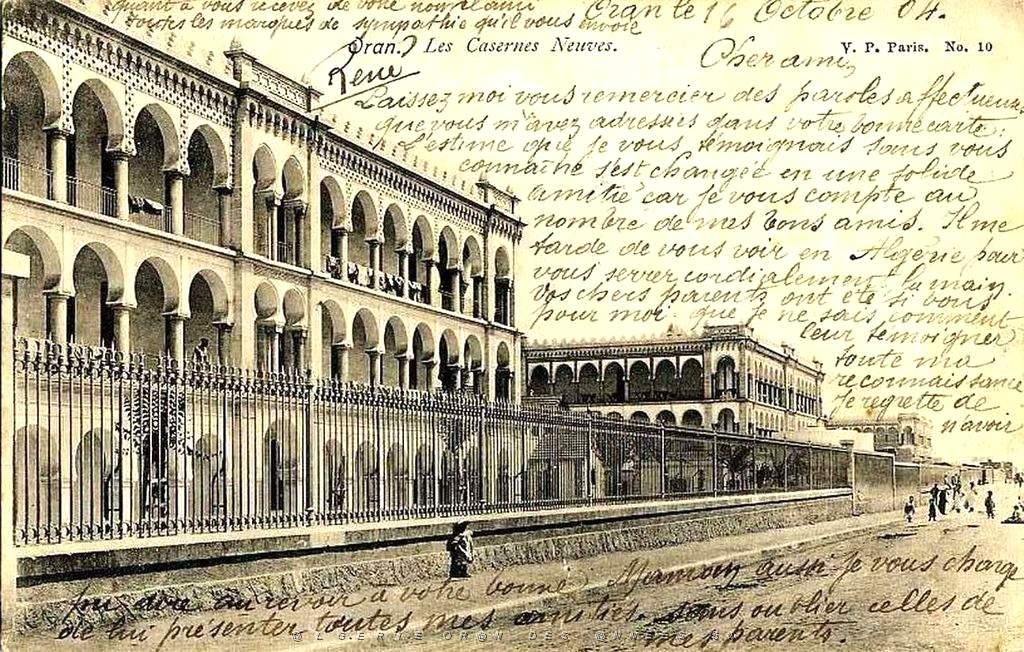 quant à vous recevez de votre nouvel ami
toutes les marques de sympathie qu'il vous envoie
René
Oran le 16 Octobre 04.
Oran. Les Casernes Neuves.
V. P. Paris. No. 10
Cher ami,
Laissez moi vous remercier des paroles affectueuses
que vous m'avez adressées dans votre bonne carte.
L'estime que je vous témoignais sans vous
connaître s'est changée en une solide
amitié car je vous compte au
nombre de mes bons amis. Il me
tarde de vous voir en Algérie pour
vous serrer cordialement la main.
Vos chers parents ont été si bons
pour moi que je ne sais comment
leur témoigner
toute ma
reconnaissance
Je regrette de
n'avoir
pu dire au revoir à votre bonne Maman aussi je vous charge
de lui présenter toutes mes amitiés sans oublier celles de
mes parents.